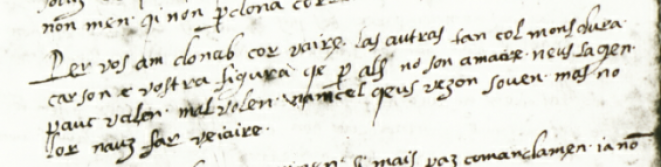 non men. qi non perdona cor
Per vos am donab cor vaire. las autras tan col mons dura
car son e vostra figura qe p als no son amaire. neus la gen
pauc valen. mal volen. cel qeus vezon soven. mas no
lor nauz far veiaire.
mais paz comandamen. ia nō